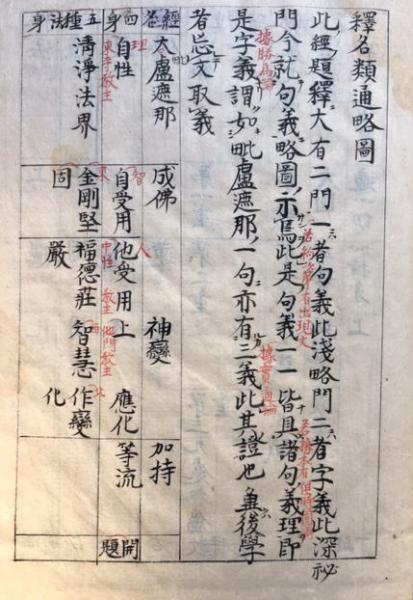 釋名類通略圖
此經題釋大有二門一者句義此淺略門二者字義此深祕
門今就句義略圖示焉此是句義一一皆具諸句義理即
是字義謂如毗盧遮那一句亦有三義此其證也無後學
者忘文取義
經 大盧遮那 成佛 神變 加持
四身 自性 自受用 他受用上 應化 等流
五種法身 清淨法界 金剛堅固 福德莊嚴 智慧 作變化
開題
理
智
人
東寺教主
中性
教主
他門教主
據勝為論
據實通論